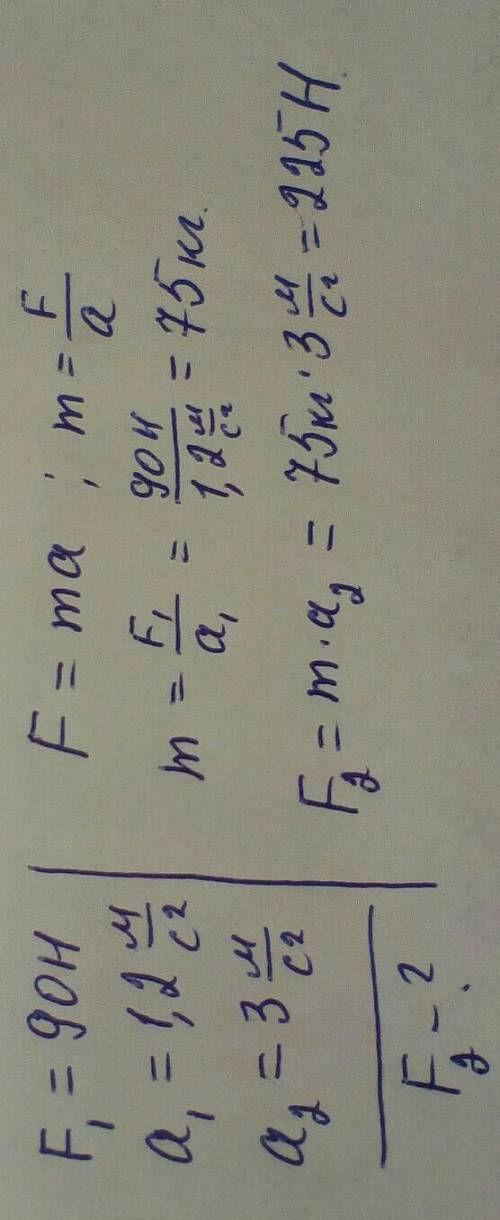 F₁ = 90Н
a₁ = 1,2 м/с²
a₂ = 3 м/с²
F₂ - ?
F = ma ; m = F/a
m = F₁/a₁ = 90Н/1,2 м/с² = 75кг.
F₂ = m·a₂ = 75кг·3 м/с² = 225Н.